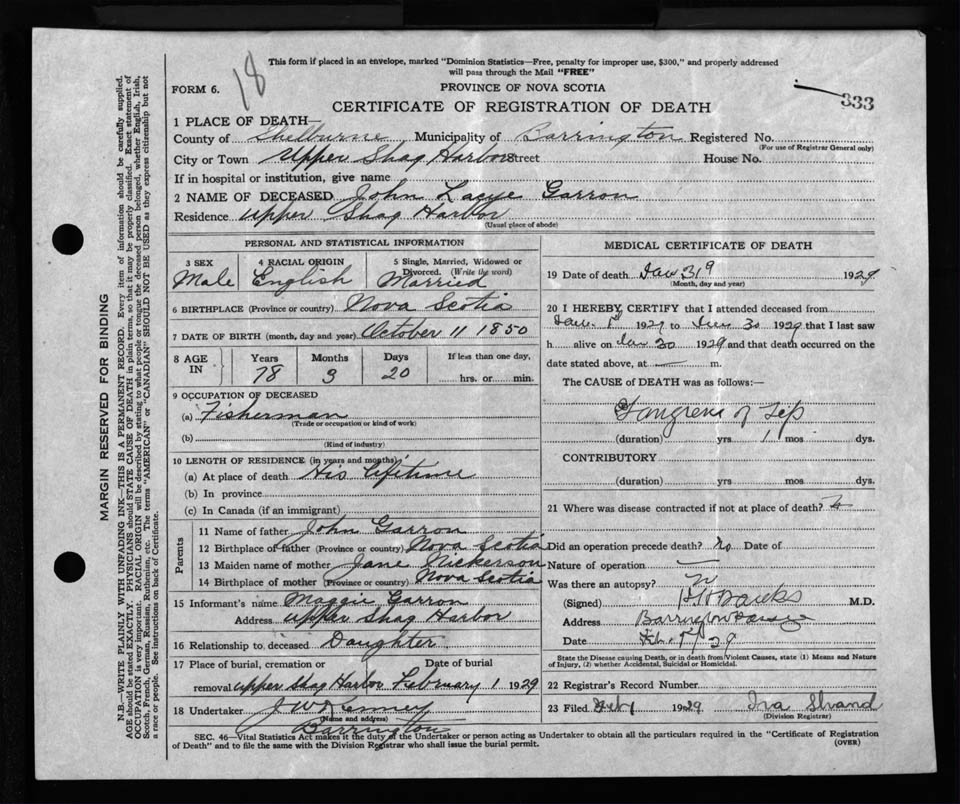 18
This form if placed in an envelope, marked "Dominion Statistics—Free, penalty for improper use, $300," and properly addressed
will pass through the Mail "FREE"
FORM 6.
PROVINCE OF NOVA SCOTIA
333
CERTIFICATE OF REGISTRATION OF DEATH
1 PLACE OF DEATH—
County of Shelburne Municipality of Barrington Registered No.
(For use of Registrar General only)
City or Town Upper Shag Harbor Street House No.
If in hospital or institution, give name
2 NAME OF DECEASED John Garron
Residence Upper Shag Harbor
(Usual place of abode)
PERSONAL AND STATISTICAL INFORMATION
3 SEX 4 RACIAL ORIGIN 5 Single, Married, Widowed or
Divorced. (Write the word)
Male English Married
6 BIRTHPLACE (Province or country) Nova Scotia
7 DATE OF BIRTH (month, day and year) October 11 1850
8 AGE IN Years Months Days If less than one day,
78 3 20 hrs. or min.
9 OCCUPATION OF DECEASED
(a) Fisherman
(Trade or occupation or kind of work)
(b)
(Kind of industry)
10 LENGTH OF RESIDENCE (in years and months)
(a) At place of death His lifetime
(b) In province
(c) In Canada (if an immigrant)
Parents
11 Name of father John Garron
12 Birthplace of father (Province or country) Nova Scotia
13 Maiden name of mother Jane Nickerson
14 Birthplace of mother (Province or country) Nova Scotia
15 Informant's name Maggie Garron
Address Upper Shag Harbor
16 Relationship to deceased Daughter
17 Place of burial, cremation or Date of burial
removal Upper Shag Harbor February 1 1929
18 Undertaker J W Kenney
(Name and address)
Barrington
MEDICAL CERTIFICATE OF DEATH
19 Date of death Jan 31 1929
(Month, day and year)
20 I HEREBY CERTIFY that I attended deceased from
Jan. 1929 to Jan 30 1929 that I last saw
h alive on Jan 30 1929 and that death occurred on the
date stated above, at m.
The CAUSE of DEATH was as follows:—
Gangrene of
(duration) yrs 1 mos dys.
CONTRIBUTORY
(duration) yrs. mos. dys.
21 Where was disease contracted if not at place of death?
Did an operation precede death? no Date of
Nature of operation —
Was there an autopsy?
(Signed) M.D.
Address Barrington Passage
Date Feb. 29
State the Disease causing Death, or in death from Violent Causes, state (1) Means and Nature
of Injury, (2) whether Accidental, Suicidal or Homicidal.
22 Registrar's Record Number
23 Filed Feb 1 1929 Iva Strand
(Division Registrar)
SEC. 46—Vital Statistics Act makes it the duty of the Undertaker or person acting as Undertaker to obtain all the particulars required in the "Certificate of Registration
of Death" and to file the same with the Division Registrar who shall issue the burial permit. (OVER)
MARGIN RESERVED FOR BINDING
N.B.—WRITE PLAINLY WITH UNFADING INK—THIS IS A PERMANENT RECORD. Every item of information should be carefully supplied.
AGE should be stated EXACTLY. PHYSICIANS should STATE CAUSE OF DEATH in plain terms, so that it may be properly classified. Exact statement of
OCCUPATION is very important. RACIAL ORIGIN will be described by stating to what people or tongue the deceased person belonged, whether English, Irish,
Scotch, French, German, Russian, Ruthenian, etc. The terms "AMERICAN" or "CANADIAN" SHOULD NOT BE USED as they express citizenship but not
a race or people. See instructions on back of Certificate.